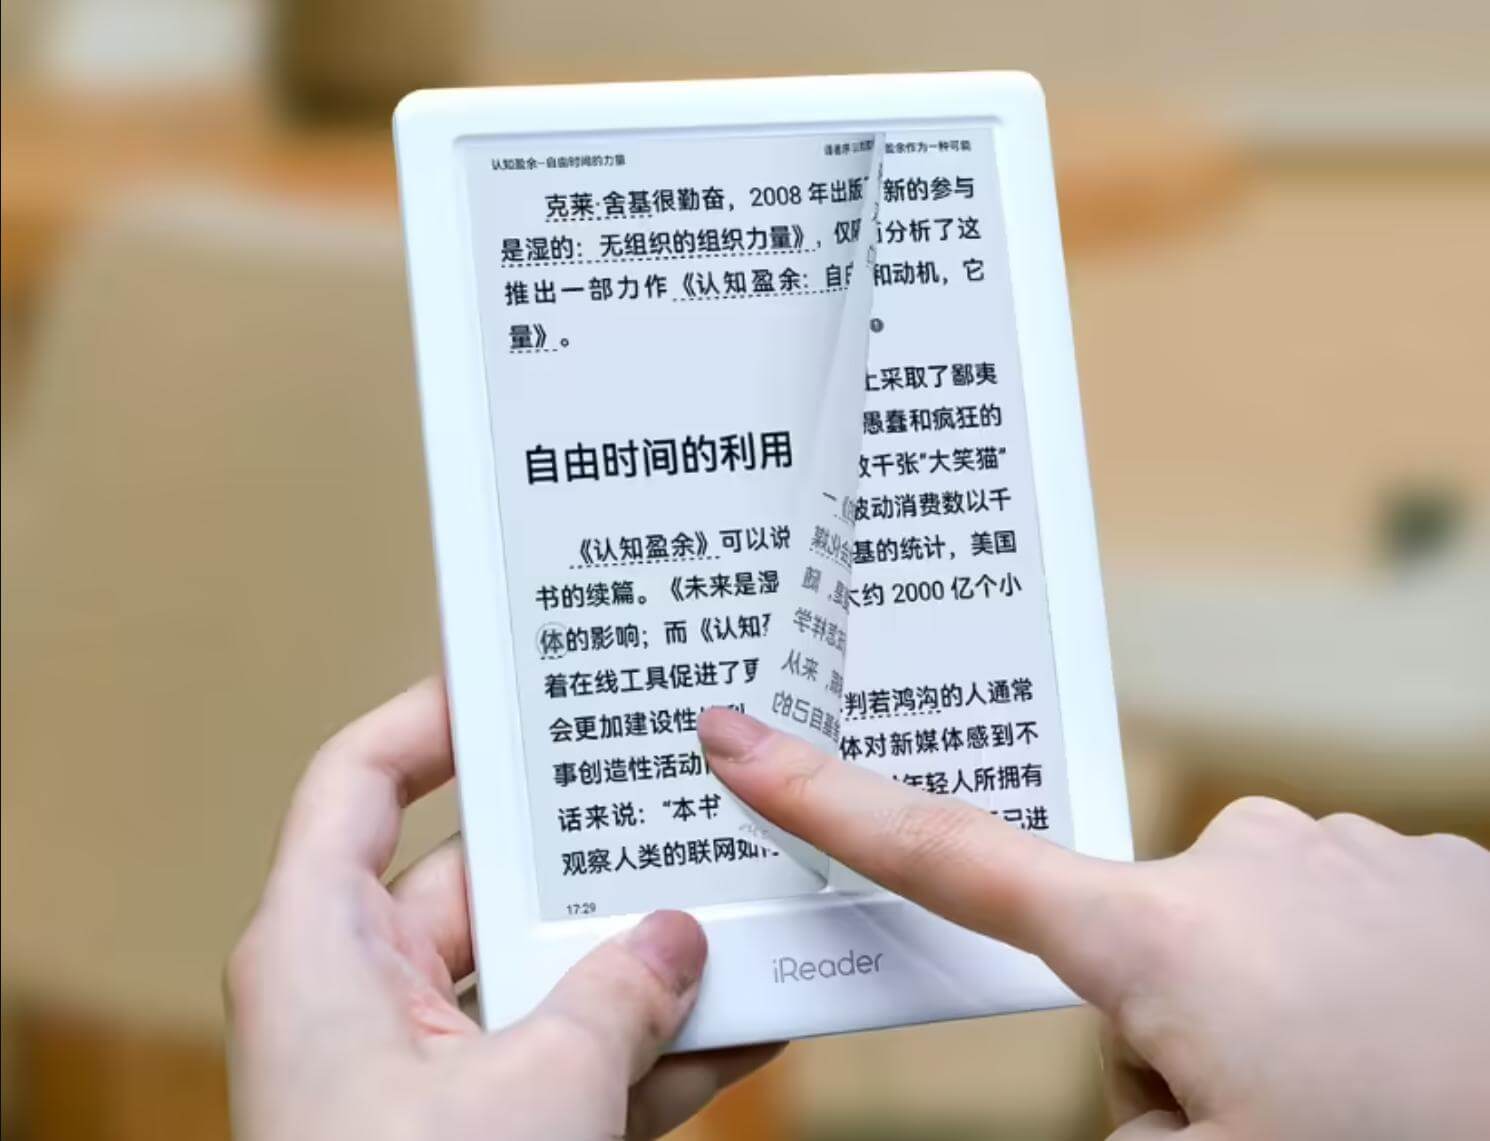 认知盈余-自由时间的力量
译者序 认知盈余作为一种可能
克莱·舍基很勤奋，2008 年出版
新的参与
是湿的：无组织的组织力量》，仅隔
分析了这
推出一部力作《认知盈余：自由
和动机，它
量》。
上采取了鄙夷
愚蠢和疯狂的
自由时间的利用
数千张“大笑猫”
被动消费数以千
《认知盈余》可以说
基的统计，美国
书的续篇。《未来是湿
大约 2000 亿个小
体的影响；而《认知
着在线工具促进了更
判若鸿沟的人通常
会更加建设性
体对新媒体感到不
事创造性活动
年轻人所拥有
话来说：“本书
已进
观察人类的联网如何
17:29
iReader